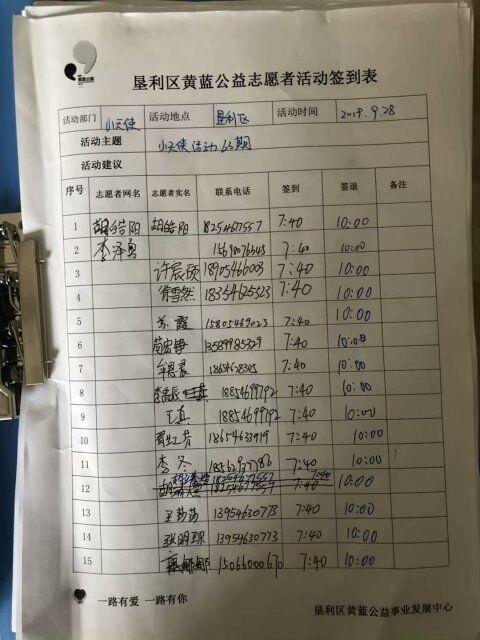 垦利区黄蓝公益志愿者活动签到表
活动部门 小天使 活动地点 垦利区 活动时间 2019.9.28
活动主题 小天使活动63期
活动建议
序号 志愿者网名 志愿者实名 联系电话 签到 签退 备注
1 胡皓阳 胡皓阳 18254677557 7:40 10:00
2 李泽勇 7:40 10:00
3 许宸硕 7:40 10:00
4 徐雪然 18354625523 7:40 10:00
5 苏霞 15805469023 7:40 10:00
6 13589985329 7:40 10:00
7 7:40 10:00
8 18854699792 7:40 10:00
9 王真 18854699792 7:40 10:00
10 18654633919 7:40 10:00
11 李冬 18562937786 7:40 10:00
12 18254677557 7:40 10:00
13 13954630773 7:40 10:00
14 张明琛 13954630773 7:40 10:00
15 15066000670 7:40 10:00
一路有爱 一路有你
垦利区黄蓝公益事业发展中心